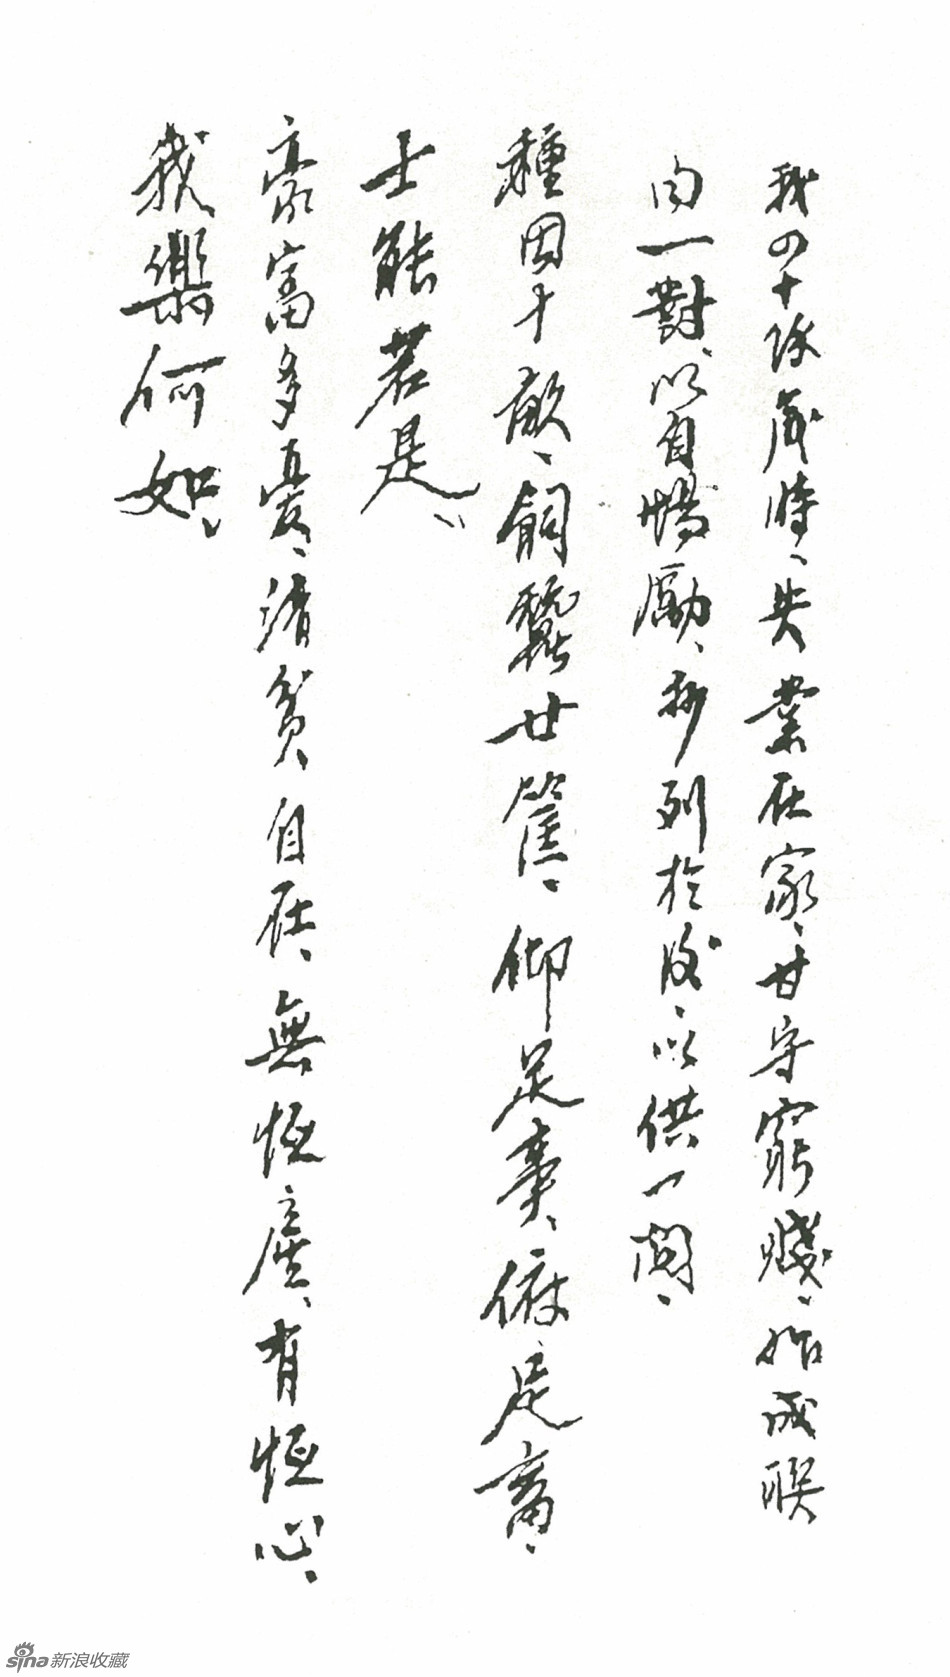 我四十馀歲時、失業在家、甘守窮賤、始成联
句一對、以自惕勵、抄列於後、以供一閱、
種田十畝、飼蠶廿筐、仰足事、俯足畜、
士能若是、
豪富多憂、清貧自在、無恒產、有恒心、
我樂何如、
sina新浪收藏